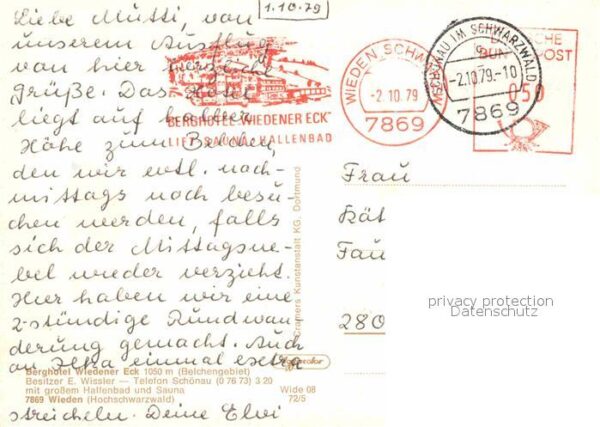 1.10.79
Liebe Mutti, von
unserem Ausflug
von hier herzliche
Grüße. Das Hotel
liegt auf halber
Höhe zum Belchen,
den wir evtl. nach-
mittags noch besu-
chen werden, falls
sich der Mittagsne-
bel wieder verzieht.
Hier haben wir eine
2-stündige Rundwan
derung gemacht. Auch
an einmal extra
streicheln. Deine Elvi
BERGHOTEL WIEDENER ECK
LIFT SAUNA HALLENBAD
WIEDEN SCHWARZW
-2.10.79
7869
SCHÖNAU IM SCHWARZWALD
-2.10.79.-10
7869
DEUTSCHE
BUNDESPOST
050
Frau
Kät
Fau
280
privacy protection
Datenschutz
Cramers Kunstanstalt KG, Dortmund
Berghotel Wiedener Eck 1050 m (Belchengebiet)
Besitzer E. Wissler — Telefon Schönau (0 76 73) 3 20
mit großem Hallenbad und Sauna
7869 Wieden (Hochschwarzwald)
Wide 08
72/5